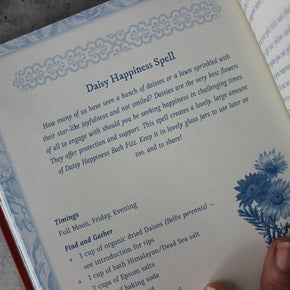 Daisy Happiness Spell
How many of us have seen a bunch of daisies or a lawn sprinkled with
their star-like joyfulness and not smiled? Daisies are the very best flowers
of all to engage with should you be seeking happiness in challenging times.
They offer protection and support. This spell creates a lovely, large amount
of Daisy Happiness Bath Fizz. Keep it in lovely glass jars to use later on
too, and to share!
Timings
Full Moon, Friday, Evening
Find and Gather
* 1 cup of organic dried Daisies (Bellis perennis) –
see introduction for tips
* 1 cup of bath Himalayan/Dead Sea salt
* 2 cups of Epsom salts
baking soda